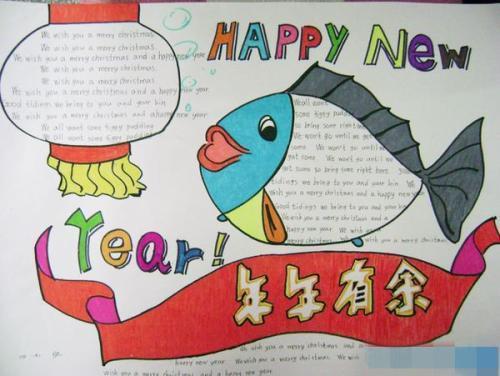 HAPPY NEW
We wish you a merry christmas
We wish you a merry christmas.
We wish you a merry christmas and a happy new year
We wish you a merry christmas.
We wish you a merry christmas
We wish you a merry christmas and a happy new year
Good tidings we bring to you and your kin
We wish you a merry christmas and a happy new year
We all want some figgy pudding
We all want some figgy pudding
We all want
some figgy pudding
so bring some right
We won't go until we get
some We won't go until
get some We won't go until we
get some so bring some right here good
tidings we bring to you and your kin We
wish you a merry christmas and a happy new
Good tidings we bring to you and your
We wish you a merry christmas and a
happy new year We wish
We wish you a merry christmas
Year!
年年有余
We wish you a merry christmas and a
happy new year We wish you a merry christmas We wish
wish you a merry christmas We wish you a merry christmas and a happy new year